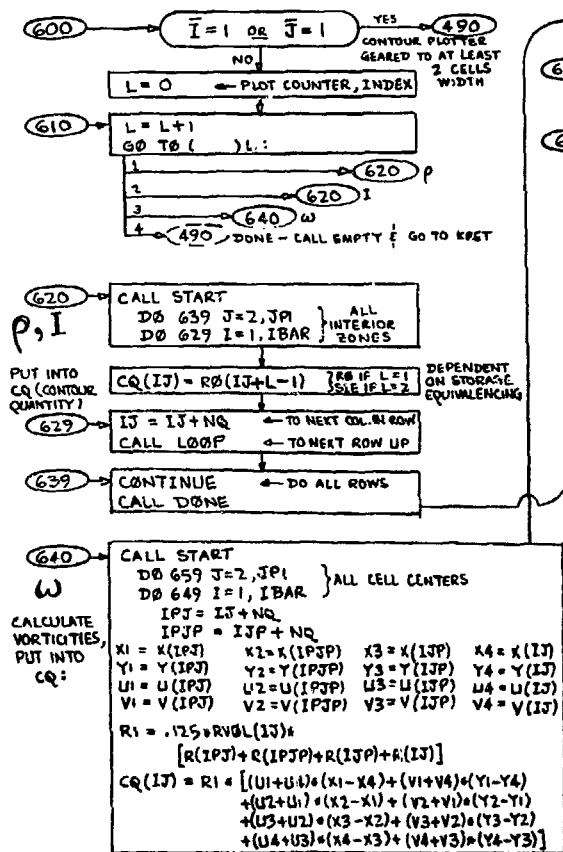 600
Ī=1 OR J̄=1
YES
490
CONTOUR PLOTTER
GEARED TO AT LEAST
2 CELLS
WIDTH
NO
L = 0 ← PLOT COUNTER, INDEX
610
L = L+1
GØ TØ ( ) L:
1 620 ρ
2 620 I
3 640 ω
4 490 DONE - CALL EMPTY & GO TO KRET
620
ρ, I
CALL START
DØ 639 J=2, JP1
DØ 629 I=1, IBAR
ALL
INTERIOR
ZONES
PUT INTO
CQ (CONTOUR
QUANTITY)
CQ(IJ) = RØ(IJ+L-1)
RØ IF L=1
SIE IF L=2
DEPENDENT
ON STORAGE
EQUIVALENCING
629
IJ = IJ+NQ ← TO NEXT COL. IN ROW
CALL LØØP ← TO NEXT ROW UP
639
CØNTINUE ← DO ALL ROWS
CALL DØNE
640
ω
CALCULATE
VORTICITIES,
PUT INTO
CQ:
CALL START
DØ 659 J=2, JP1
DØ 649 I=1, IBAR
ALL CELL CENTERS
IPJ = IJ+NQ
IPJP = IJP + NQ
X1 = X(IPJ) X2 = X(IPJP) X3 = X(IJP) X4 = X(IJ)
Y1 = Y(IPJ) Y2 = Y(IPJP) Y3 = Y(IJP) Y4 = Y(IJ)
U1 = U(IPJ) U2 = U(IPJP) U3 = U(IJP) U4 = U(IJ)
V1 = V(IPJ) V2 = V(IPJP) V3 = V(IJP) V4 = V(IJ)
R1 = .125*RVØL(IJ)*
[R(IPJ)+R(IPJP)+R(IJP)+R(IJ)]
CQ(IJ) = R1 * [(U1+U4)*(X1-X4)+(V1+V4)*(Y1-Y4)
+(U2+U1)*(X2-X1)+(V2+V1)*(Y2-Y1)
+(U3+U2)*(X3-X2)+(V3+V2)*(Y3-Y2)
+(U4+U3)*(X4-X3)+(V4+V3)*(Y4-Y3)]